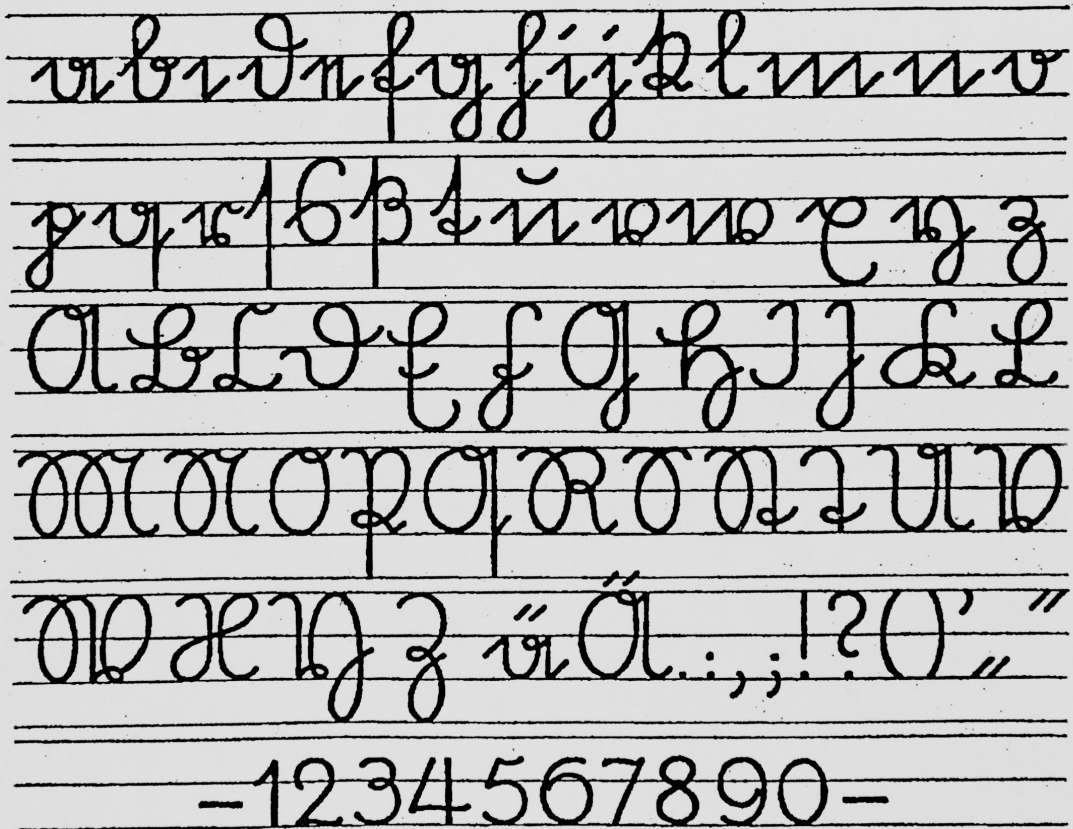 a b c d e f g h i j k l m n o
p q r ſ s ß t u v w x y z
A B C D E F G H I J K L
M N O P Q R S St T U V
W X Y Z ä Ä . : , ; ! ? ( ) ’ „ ”
- 1 2 3 4 5 6 7 8 9 0 -